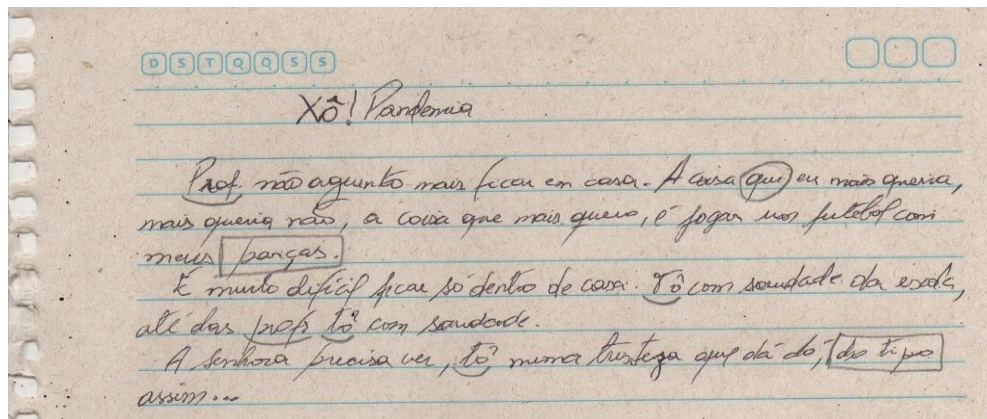 D S T Q Q S S
Xô! Pandemia
Prof. não aguento mais ficar em casa. A coisa que eu mais queria,
mais queria não, a coisa que mais quero, é jogar um futebol com
meus parças.
É muito difícil ficar só dentro de casa. Tô com saudade da escola,
até das profs tô com saudade.
A senhora precisa ver, tô numa tristeza que dá dó, do tipo
assim...